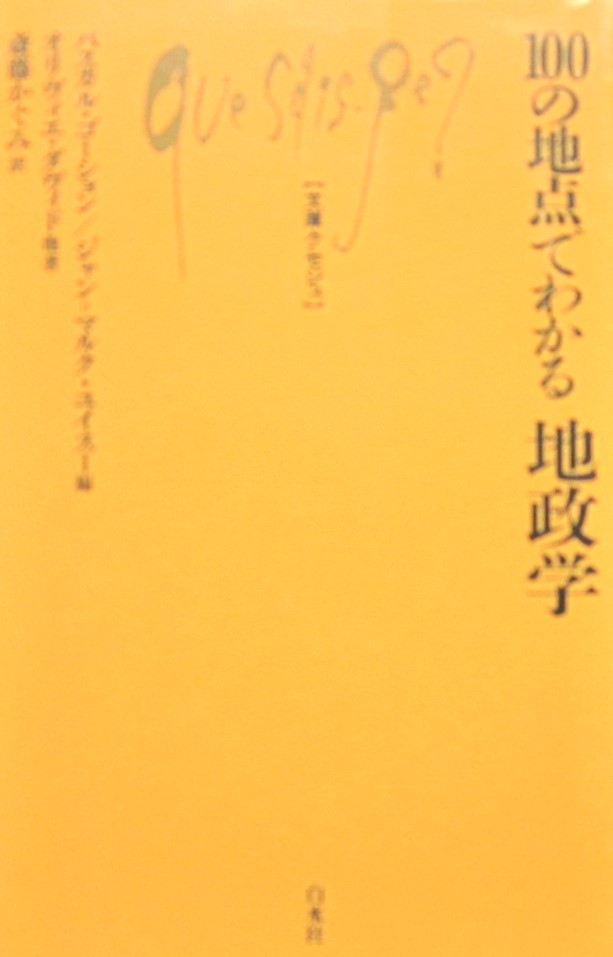 100の地点でわかる 地政学
Que sais-je?
【文庫クセジュ】
パスカル・ゴーション／ジャン=マルク・ユイスー編
オリヴィエ・ダヴィド他著
斎藤かぐみ訳
白水社